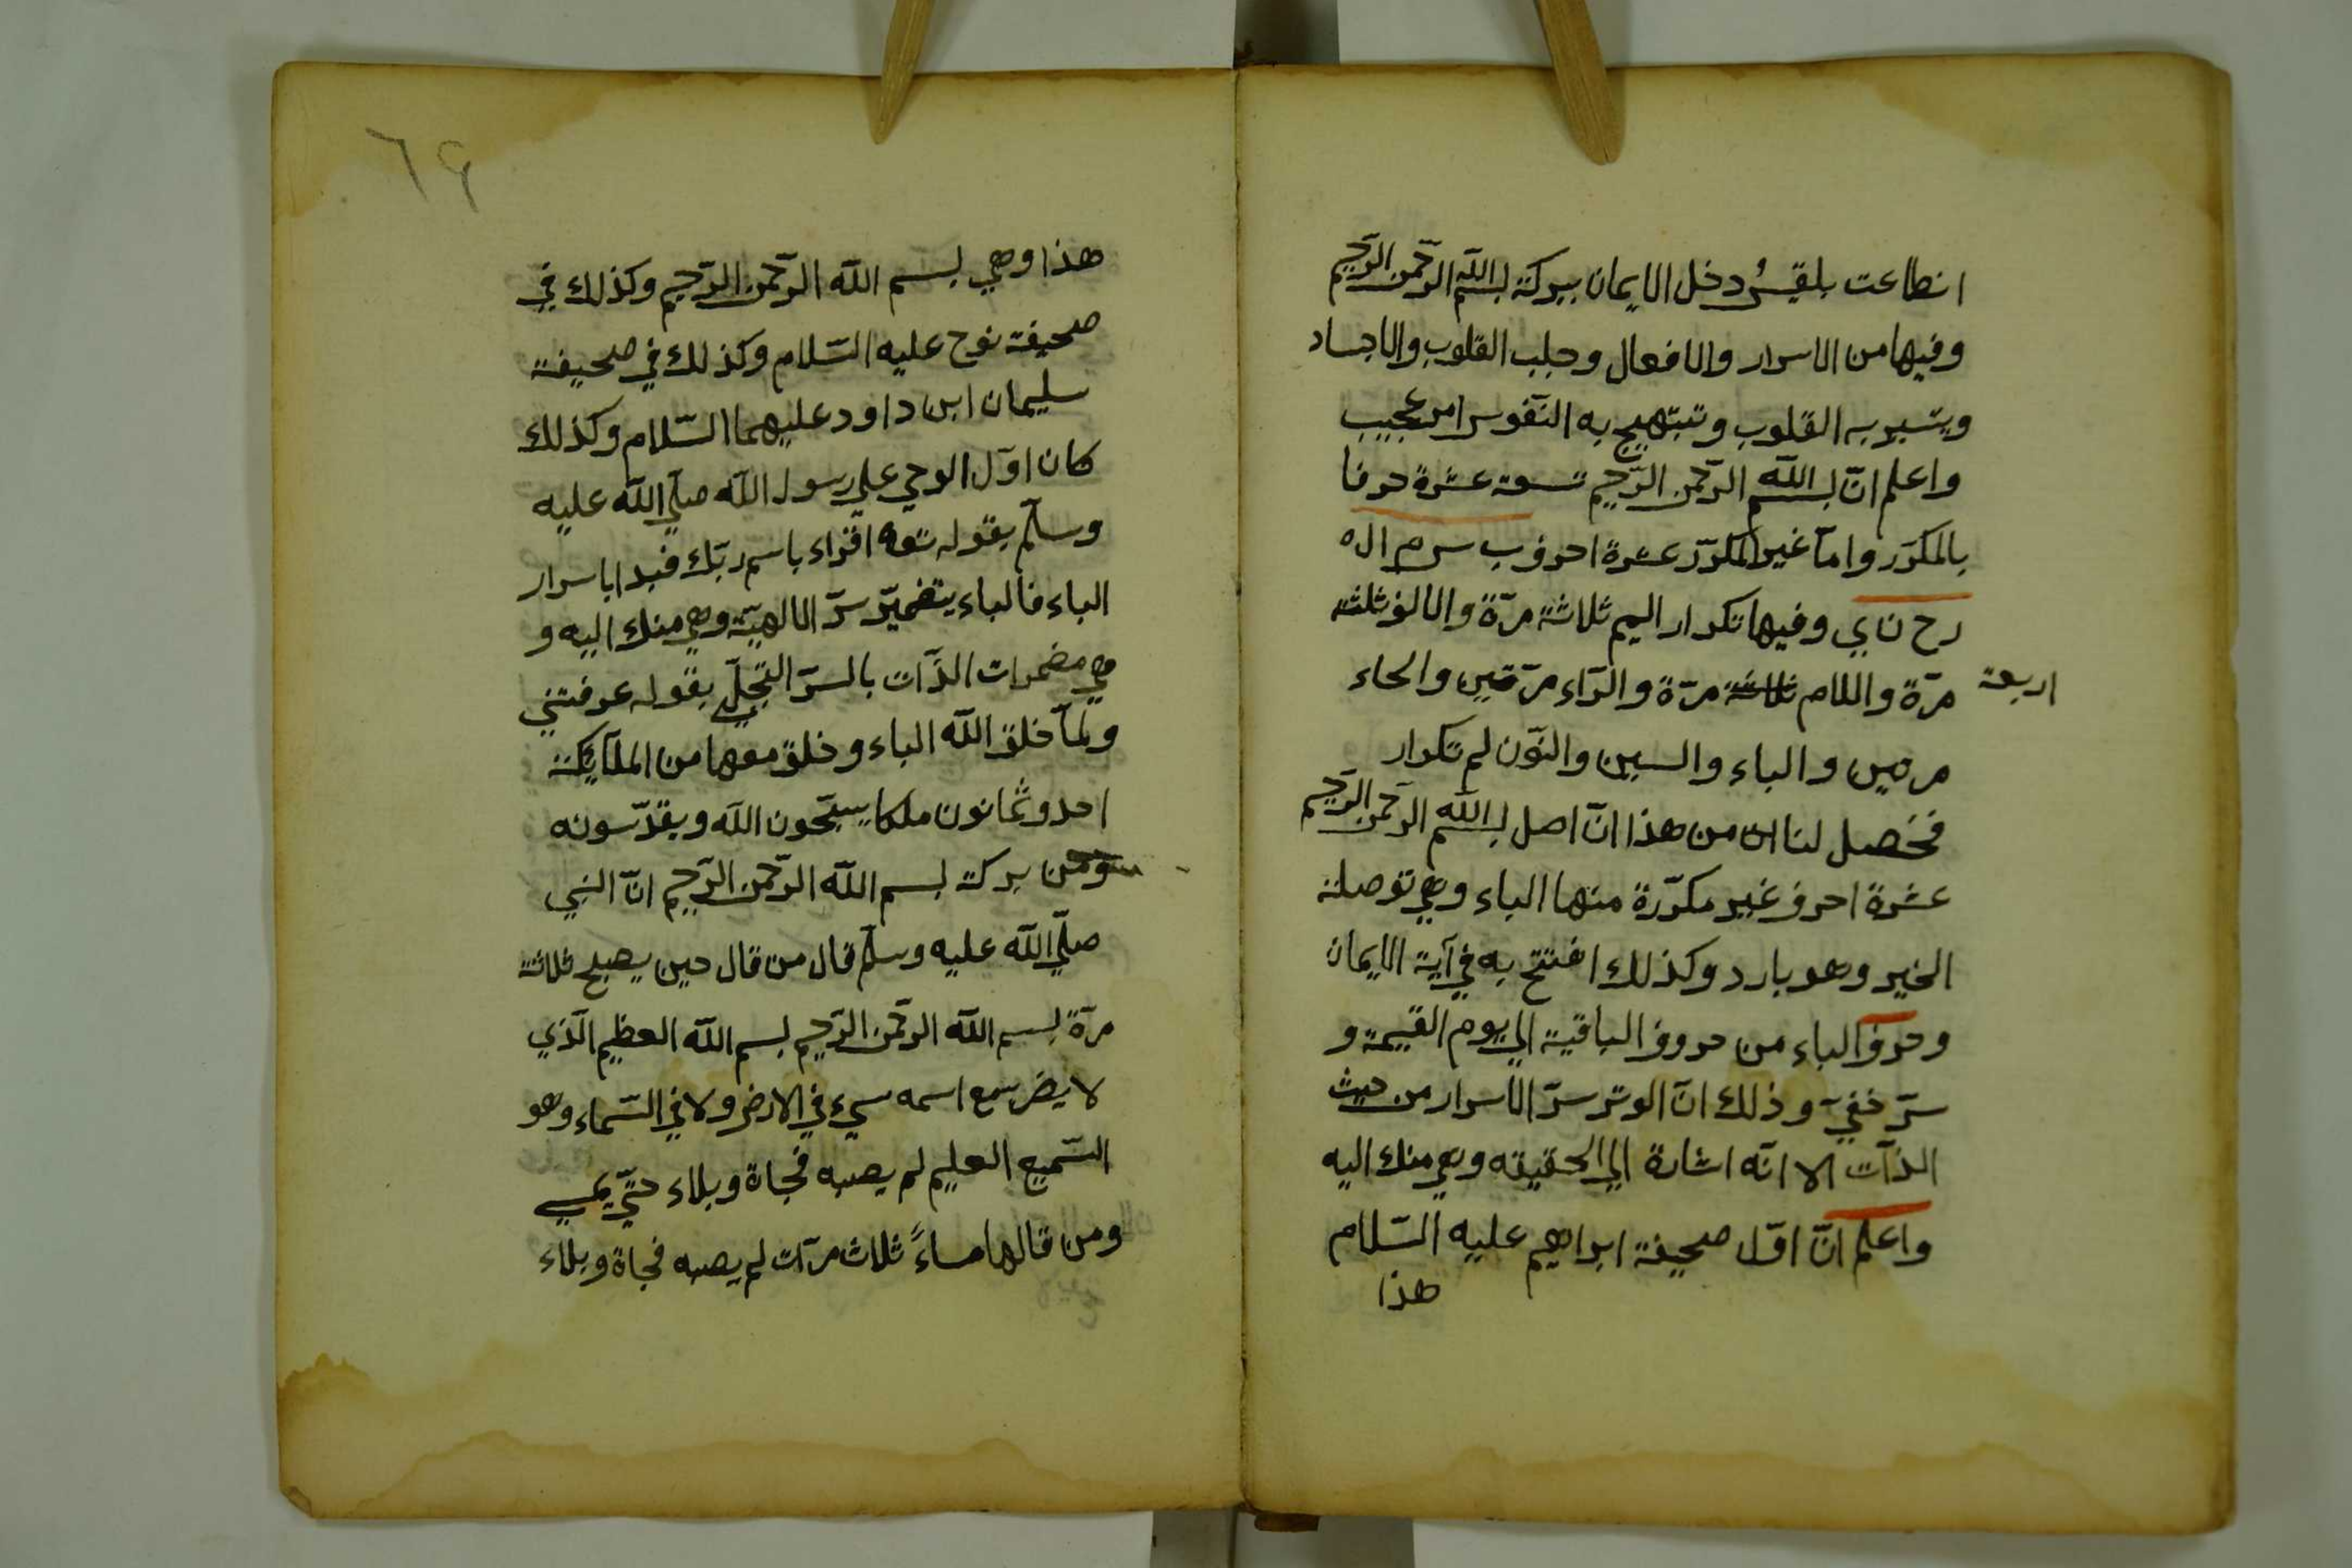 انطاعت بلقيسُ دخل الايمان ببركة بسم الله الرّحمن الرّحيم
وفيها من الاسرار والافعال وجلب القلوب والاجساد
ويتسير به القلوب وتبتهيج به النّفوس امر عجيب
واعلم انّ بسم الله الرّحمن الرّحيم تسعة عشرة حرفا
بالمكرّر وامّا غير المكرّر عشرة احرف ب س م ال ه
رح ن ي وفيها تكرار الميم ثلاثة مرّة والالف ثلثة
مرّة واللام ثلاثة مرّة والرّاء مرّتين والحاء
اربعة
مرتين والباء والسين والنّون لم تكرار
فخصل لنا ان من هذا انّ اصل بسم الله الرّحمن الرّحيم
عشرة احرف غير مكرّرة منها الباء وهي توصلة
الخير وهو بارد وكذلك افتتح به في آية الايمان
وحرف الباء من حروف الباقية الي يوم القيمة و
سرّ خفيّ وذلك انّ الوتر سرّ الاسرار من حيث
الذّات الا انّه اشارة الي الحقيقه وهي منك اليه
واعلم انّ اوّل صحيفة ابراهيم عليه السّلام
هذا
٦٩
هذا وهي بسم الله الرّحمن الرّحيم وكذلك في
صحيفة نوح عليه السّلام وكذلك في صحيفة
سليمان ابن داود عليهما السّلام وكذلك
كان اوّل الوحي علي رسول الله صلّي الله عليه
وسلّم بقوله تعه اقراء باسم ربّك فبدا باسرار
الباء فالباء يتضميّر سرّ الالهيّة وهي منك اليه و
هي مضمرات الذّات بالسرّ التجلّي بقوله عرفتني
ولمّا خلق الله الباء وخلق معها من الملآيكة
احد وثمانون ملكا يسبّحون الله ويقدّسونه
ومن بركة بسم الله الرّحمن الرّحيم انّ النبي
صلّي الله عليه وسلّم قال من قال حين يصبح ثلاثة
مرّة بسم الله الرّحمن الرّحيم بسم الله العظيم الّذي
لا يضر مع اسمه سيء في الارض ولا في السّماء وهو
السّميع العليم لم يصبه فجاة وبلاء حتّي يمسي
ومن قالها مساءً ثلاث مرّات لم يصبه فجاة وبلاء